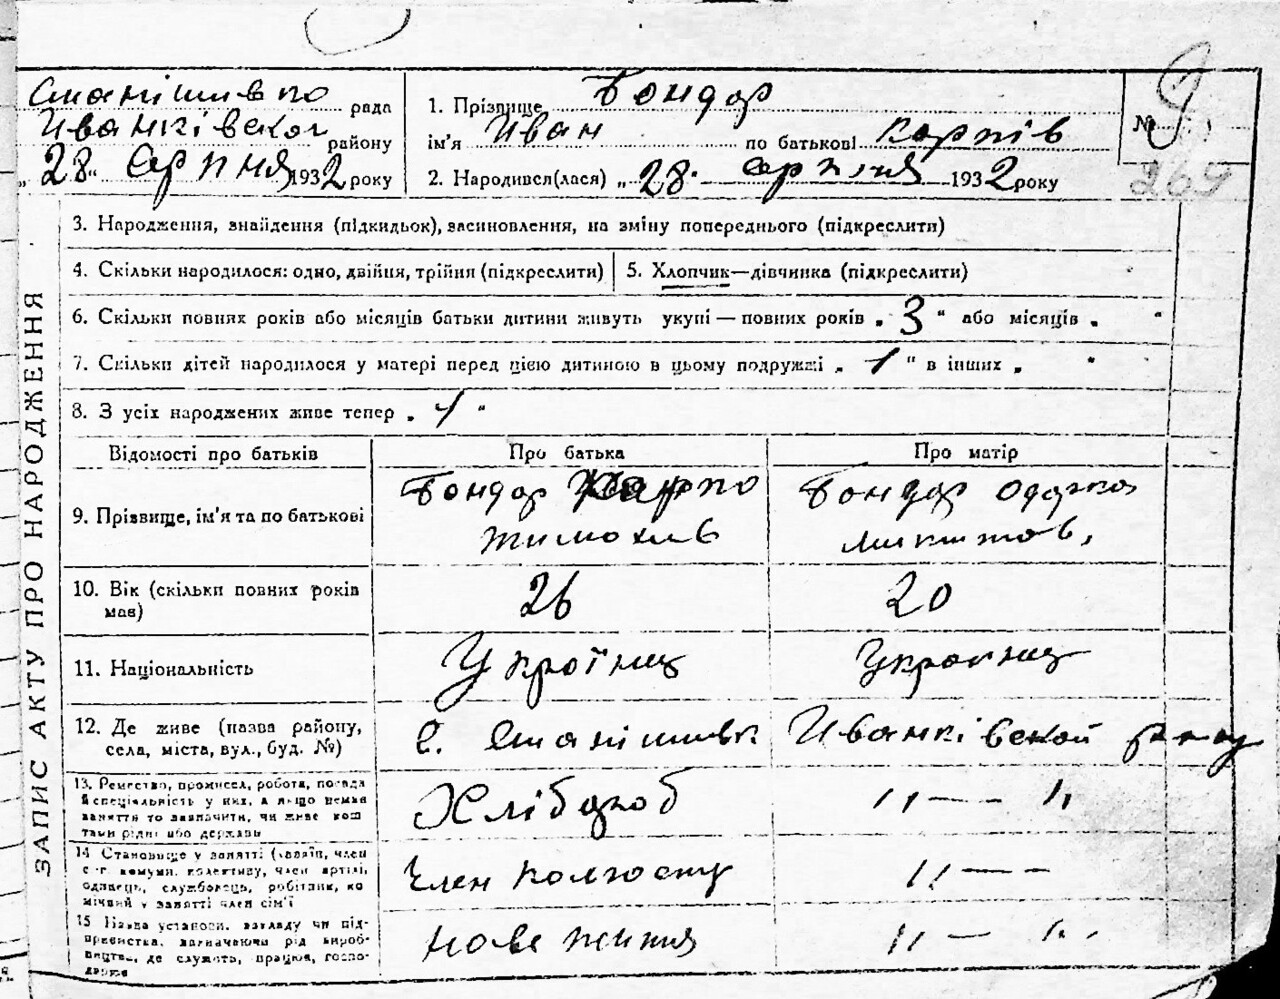 ЗАПИС АКТУ ПРО НАРОДЖЕННЯ
Станішивко рада
Иванківскої району
„28“ Серпня 1932 року
1. Прізвище Бондар
ім'я Иван по батькові Карпів
2. Народився(лася) „28“ серпня 1932 року
№ 9
269
3. Народження, знайдення (підкидьок), засиновлення, на зміну попереднього (підкреслити)
4. Скільки народилося: одно, двійня, трійня (підкреслити)
5. Хлопчик—дівчинка (підкреслити)
6. Скільки повних років або місяців батьки дитини живуть укупі — повних років „3“ або місяців „ “
7. Скільки дітей народилося у матері перед цією дитиною в цьому подружжі „1“ в інших „ “
8. З усіх народжених живе тепер „1“
Відомості про батьків Про батька Про матір
9. Прізвище, ім'я та по батькові
Бондар Карпо
Тимохив
Бондар Одарка
Микитов,
10. Вік (скільки повних років має)
26 20
11. Національність Українец Украинец
12. Де живе (назва району,
села, міста, вул., буд. №)
С. Станішивк Иванківской району
13. Ремество, промисел, робота, посада
й спеціяльність у них, а якщо немає
заняття то зазначити, чи живе кош
тами рідні або держави
Хлібороб „ — — „
14 Становище у занятті (хазяїн, член
с.-г. комуни, колективу, член артілі,
одинець, службовець, робітник, по
мічний у занятті член сім'ї
Член колгоспу „ — —
15 Назва установи, закладу чи під-
приємства, зазначаючи рід вироб-
ництва, де служить, працює, госпо-
дарює
нове життя „ — „